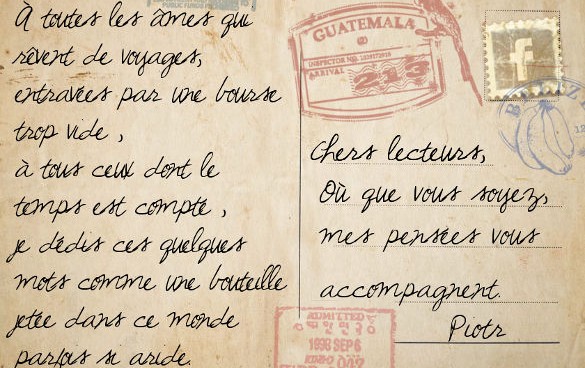 À toutes les âmes qui
rêvent de voyages,
entravées par une bourse
trop vide,
à tous ceux dont le
temps est compté,
je dédis ces quelques
mots comme une bouteille
jetée dans ce monde
parfois si aride.
GUATEMALA
ARRIVAL
213
f
Chers lecteurs,
Où que vous soyez,
mes pensées vous
accompagnent.
Piotr
ADMITTED
1998 SEP 6